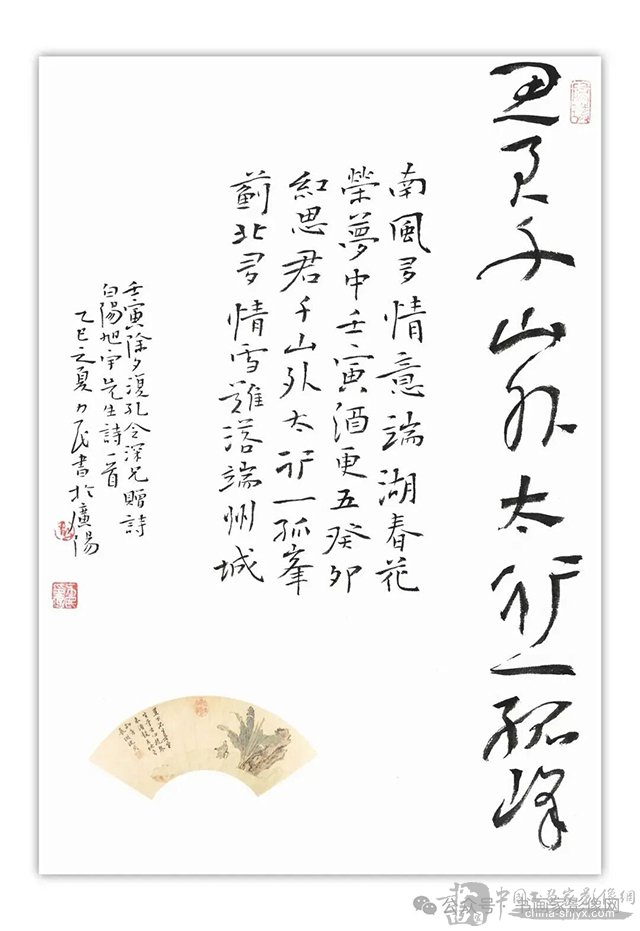 思君千山外太行一孤峰
南風多情意端湖春花
榮夢中壬寅酒更五癸卯
紅思君千山外太行一孤峯
薊北多情雪難落端州城
壬寅除夕復孔令深兄贈詩
白陽旭宇先生詩一首
乙巳之夏力民書於廣陽
公众号·书画家影像网
china-shjyx.com